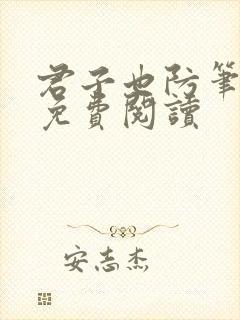 君子也防笔
免費閱讀
安志杰